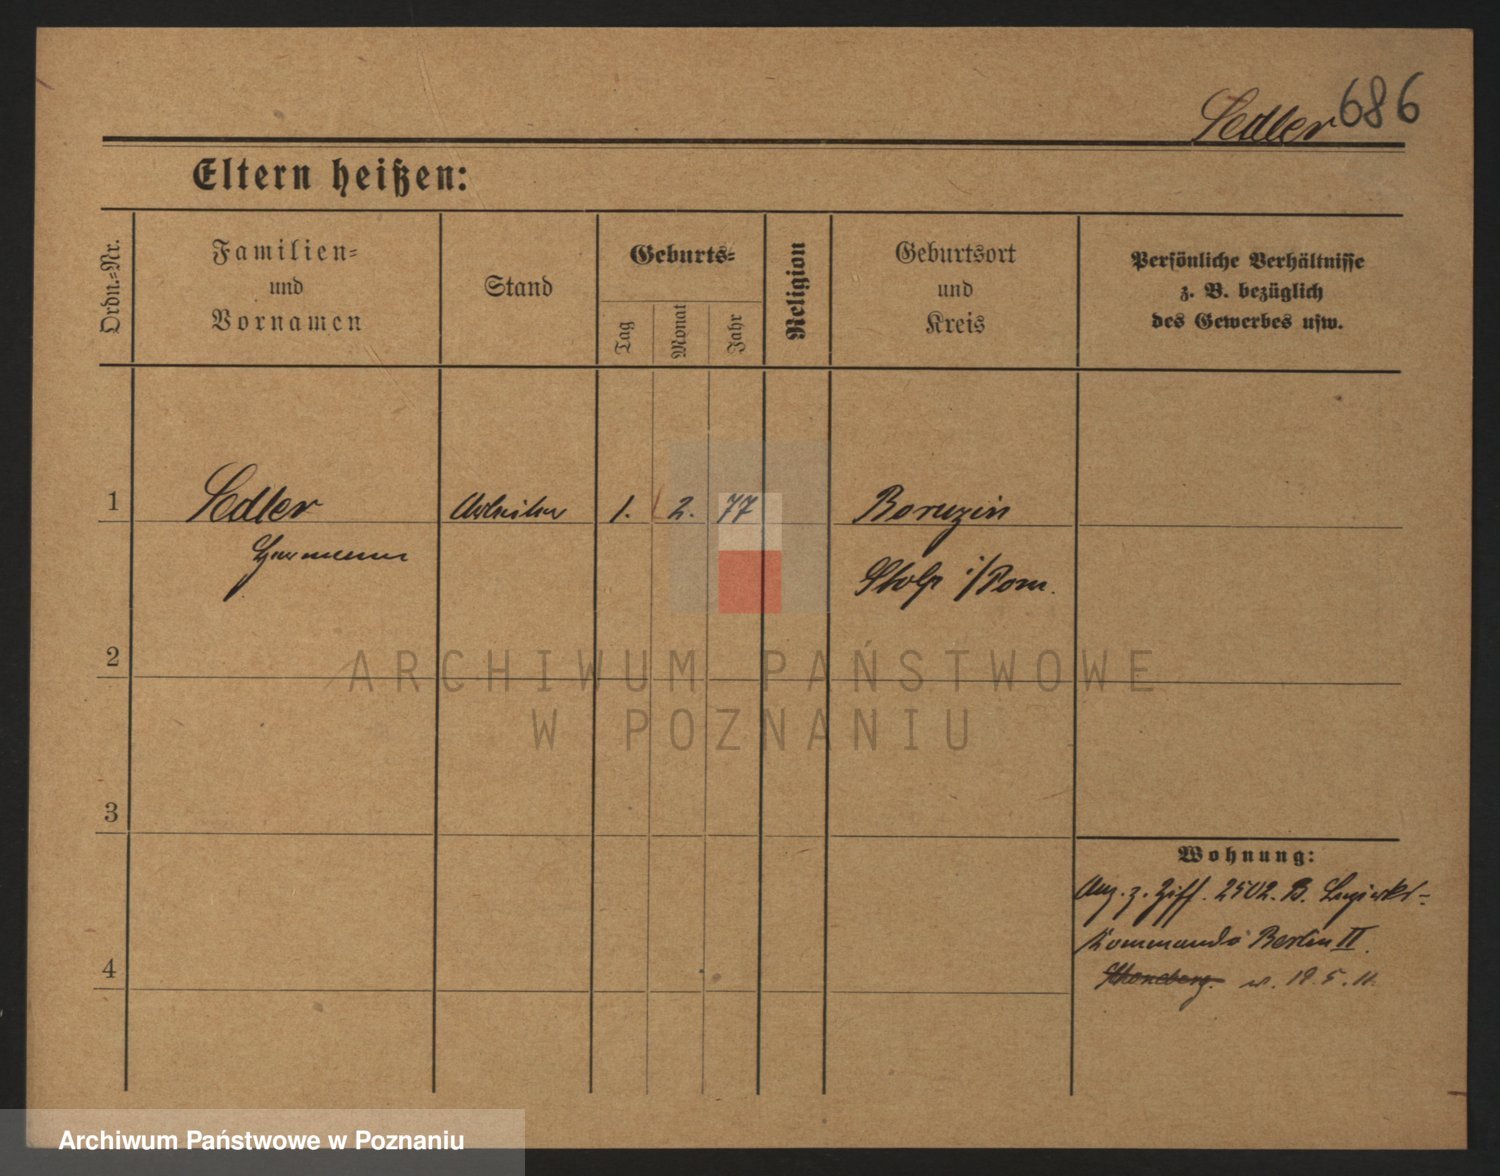 Sedler 686
Eltern heißen:
Ordn.-Nr.
Familien-
und
Vornamen
Stand
Geburts-
Tag
Monat
Jahr
Religion
Geburtsort
und
Kreis
Persönliche Verhältnisse
z. B. bezüglich
des Gewerbes usw.
1 Sedler Arbeiter 1. 2. 77 Boruzin
Hermann
Stolp i/Pom.
2
ARCHIWUM PAŃSTWOWE
W POZNANIU
3
Wohnung:
z. Ziff. 2502. B. Bezirks-
Kommando Berlin II.
4
Schöneberg. w. 19.5.11.
Archiwum Państwowe w Poznaniu